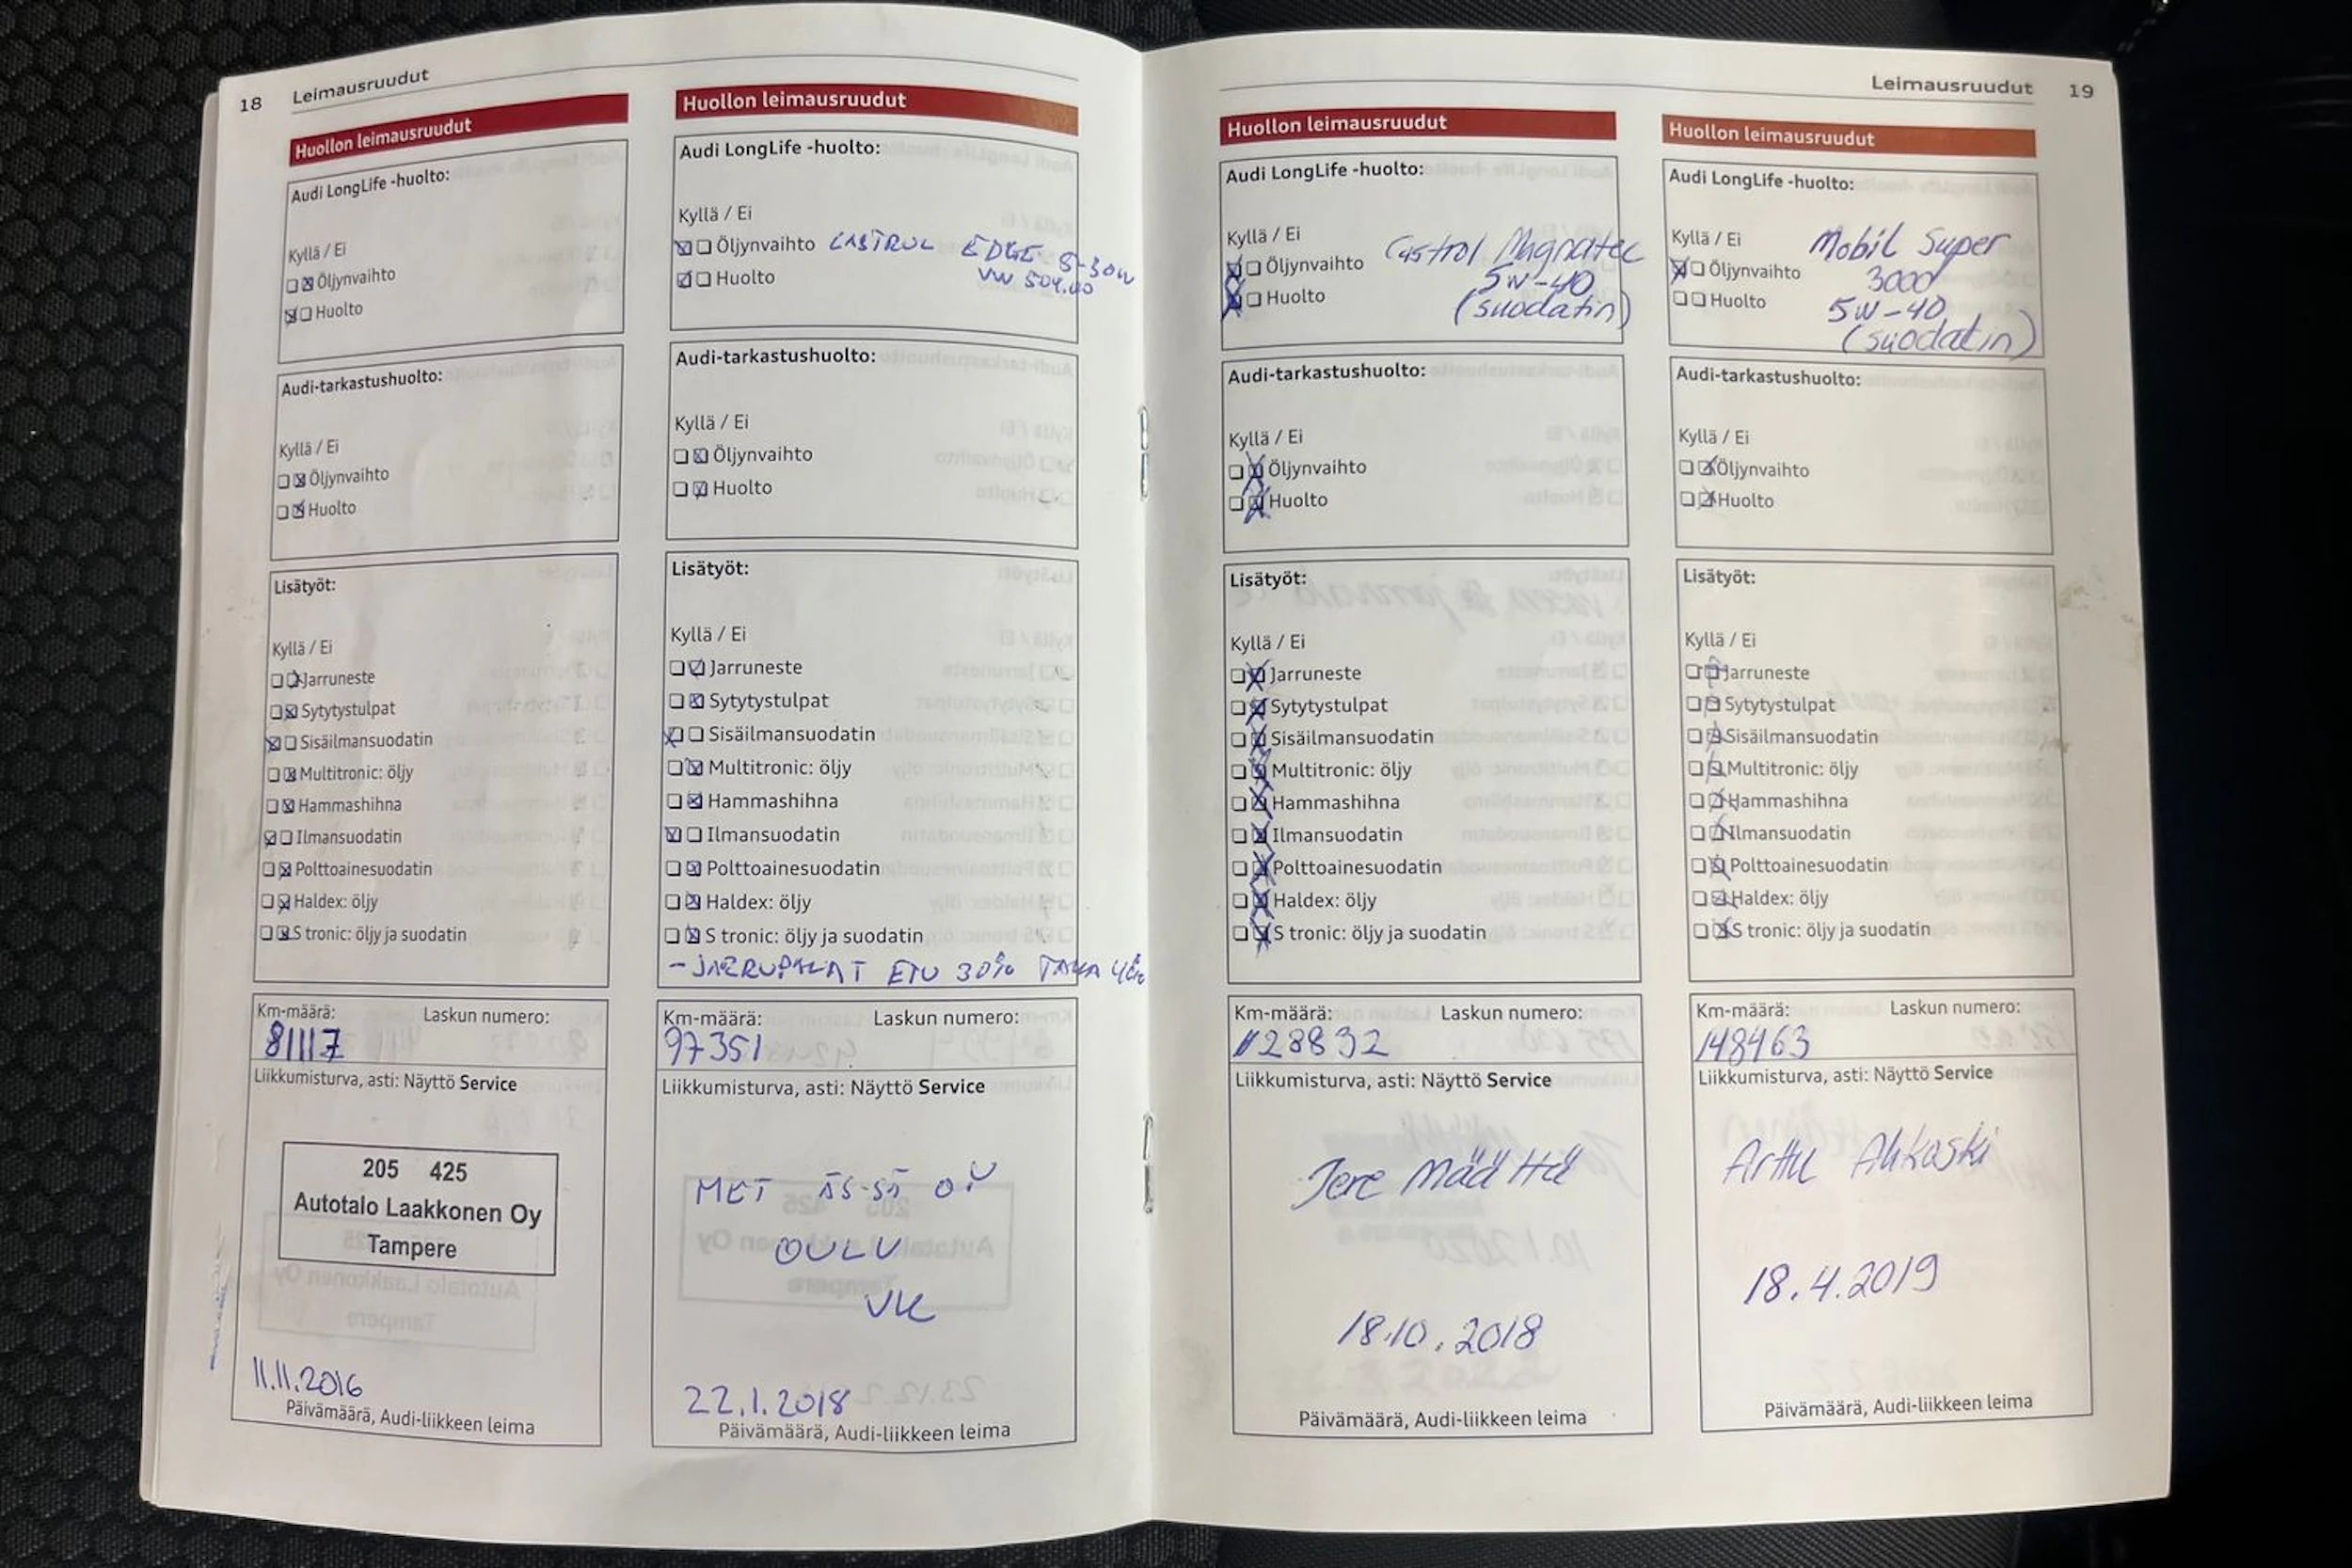 18 Leimausruudut
Huollon leimausruudut
Audi LongLife -huolto:
Kyllä / Ei
Öljynvaihto
Huolto
Audi-tarkastushuolto:
Kyllä / Ei
Öljynvaihto
Huolto
Lisätyöt:
Kyllä / Ei
Jarruneste
Sytytystulpat
Sisäilmansuodatin
Multitronic: öljy
Hammashihna
Ilmansuodatin
Polttoainesuodatin
Haldex: öljy
S tronic: öljy ja suodatin
Km-määrä: Laskun numero:
81117
Liikkumisturva, asti: Näyttö Service
205 425
Autotalo Laakkonen Oy
Tampere
11.11.2016
Päivämäärä, Audi-liikkeen leima
Huollon leimausruudut
Audi LongLife -huolto:
Kyllä / Ei
Öljynvaihto CASTROL EDGE 5-30W
Huolto VW 504.00
Audi-tarkastushuolto:
Kyllä / Ei
Öljynvaihto
Huolto
Lisätyöt:
Kyllä / Ei
Jarruneste
Sytytystulpat
Sisäilmansuodatin
Multitronic: öljy
Hammashihna
Ilmansuodatin
Polttoainesuodatin
Haldex: öljy
S tronic: öljy ja suodatin
- JARRUPALAT ETU 30% TAKA
Km-määrä: Laskun numero:
97351
Liikkumisturva, asti: Näyttö Service
MET ÄS-SÄ OY
OULU
VK
22.1.2018
Päivämäärä, Audi-liikkeen leima
Leimausruudut 19
Huollon leimausruudut
Audi LongLife -huolto:
Kyllä / Ei
Öljynvaihto Castrol Magnatec
5W-40
Huolto (suodatin)
Audi-tarkastushuolto:
Kyllä / Ei
Öljynvaihto
Huolto
Lisätyöt:
Kyllä / Ei
Jarruneste
Sytytystulpat
Sisäilmansuodatin
Multitronic: öljy
Hammashihna
Ilmansuodatin
Polttoainesuodatin
Haldex: öljy
S tronic: öljy ja suodatin
Km-määrä: Laskun numero:
128832
Liikkumisturva, asti: Näyttö Service
Jere Määttä
18.10.2018
Päivämäärä, Audi-liikkeen leima
Huollon leimausruudut
Audi LongLife -huolto:
Kyllä / Ei Mobil Super
Öljynvaihto 3000
Huolto 5W-40
(suodatin)
Audi-tarkastushuolto:
Kyllä / Ei
Öljynvaihto
Huolto
Lisätyöt:
Kyllä / Ei
Jarruneste
Sytytystulpat
Sisäilmansuodatin
Multitronic: öljy
Hammashihna
Ilmansuodatin
Polttoainesuodatin
Haldex: öljy
S tronic: öljy ja suodatin
Km-määrä: Laskun numero:
148463
Liikkumisturva, asti: Näyttö Service
Arttu Ahkoski
18.4.2019
Päivämäärä, Audi-liikkeen leima